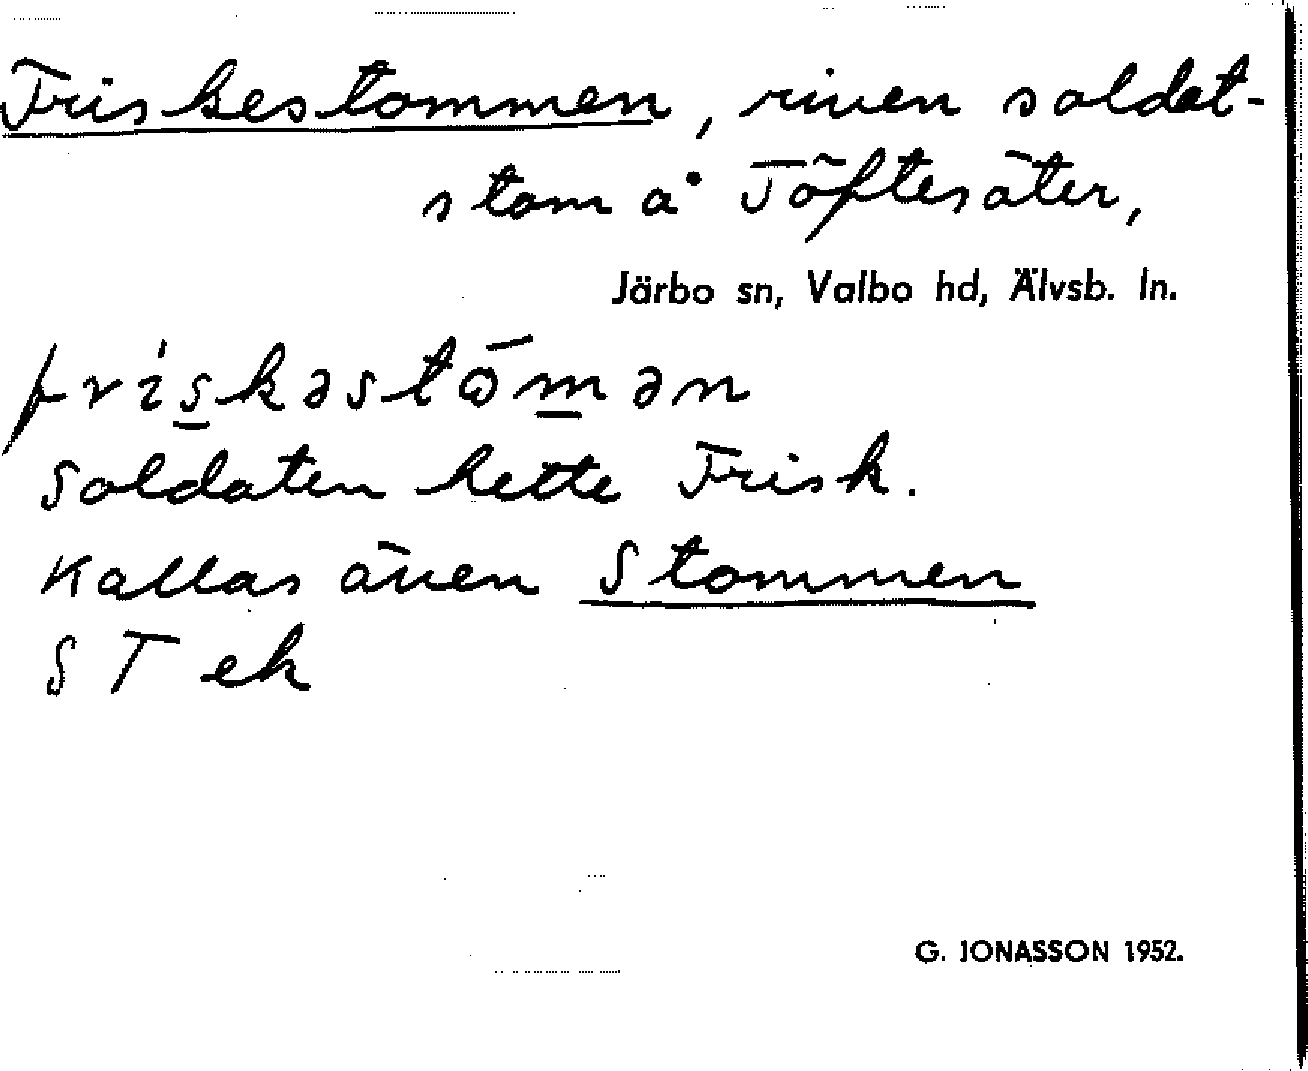 Friskestommen, riven soldat-
stom å Töftesäter,
Järbo sn, Valbo hd, Älvsb. ln.
friskəstōmən
Soldaten hette Frisk.
Kallas även Stommen
S T ek
G. JONASSON 1952.